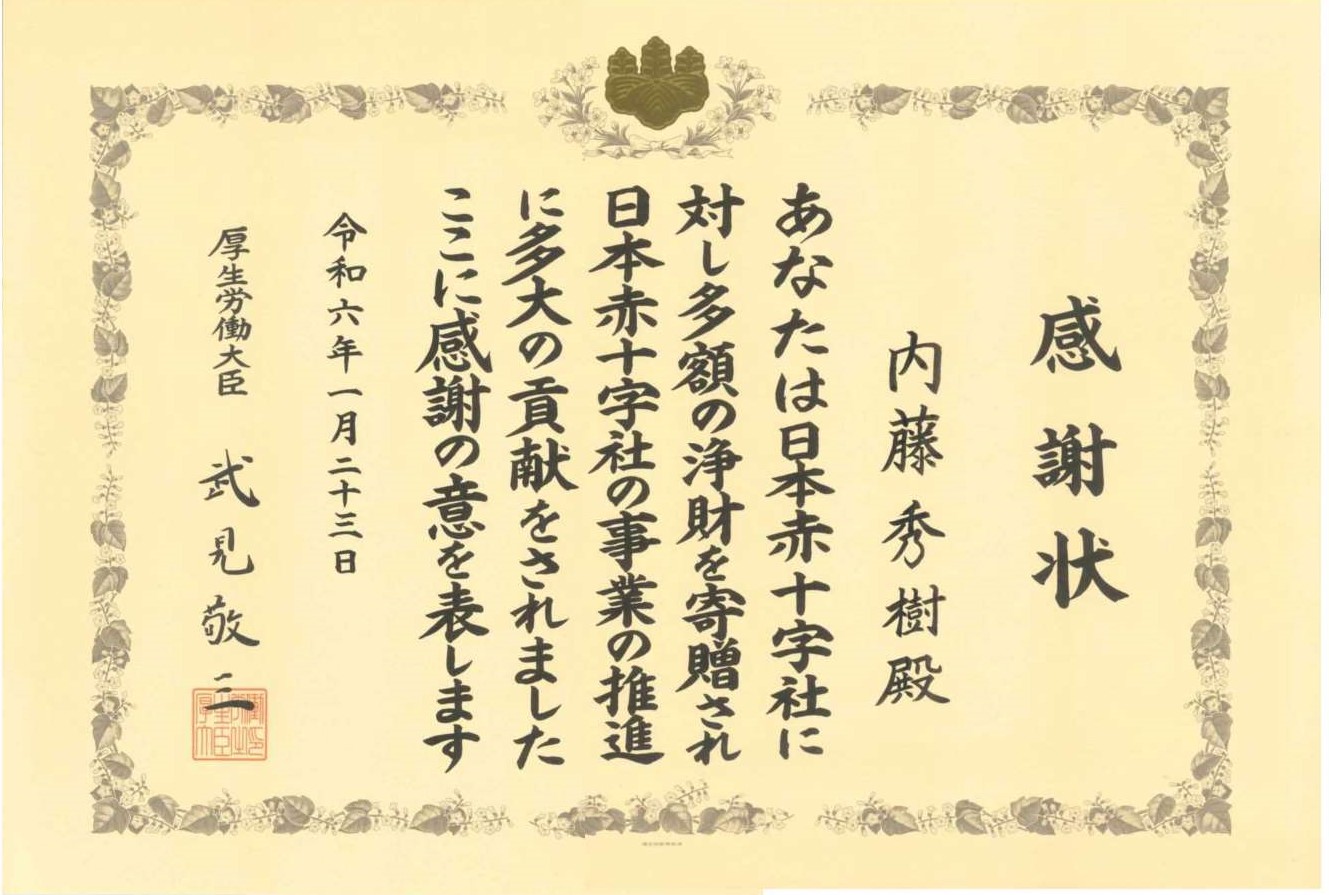 感謝状
内藤秀樹殿
あなたは日本赤十字社に
対し多額の浄財を寄贈され
日本赤十字社の事業の推進
に多大の貢献をされました
ここに感謝の意を表します
令和六年一月二十三日
厚生労働大臣 武見敬三